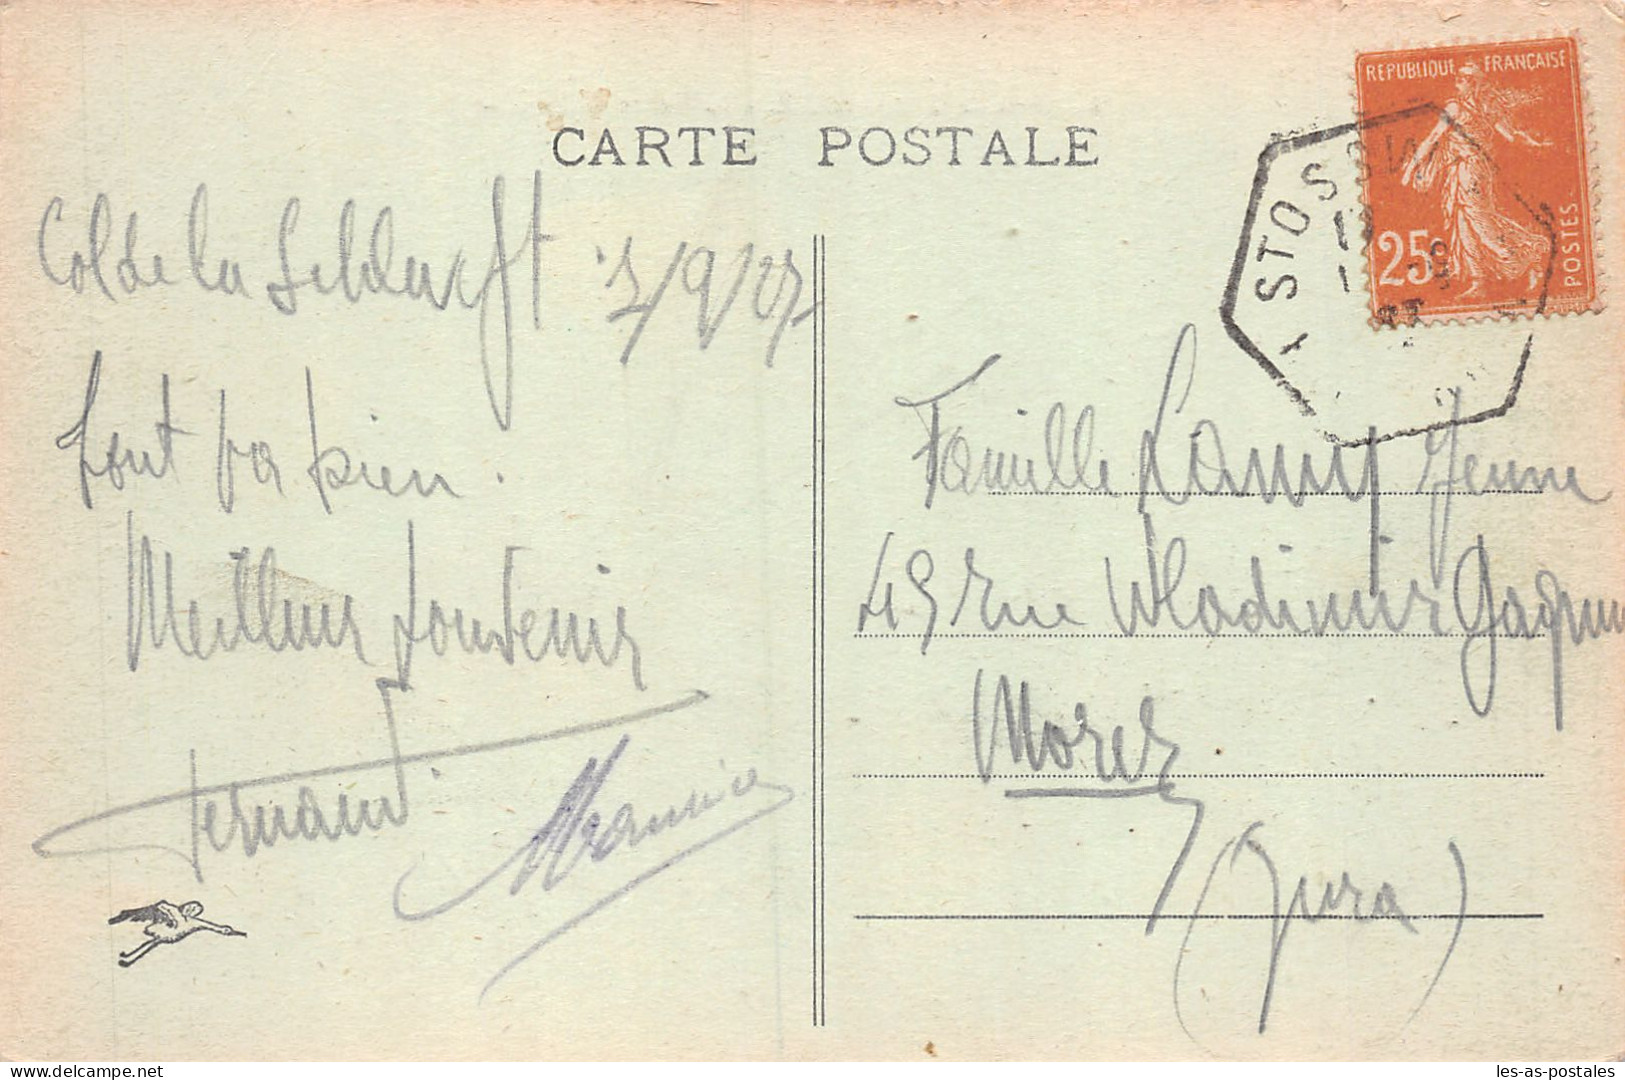 CARTE POSTALE
REPUBLIQUE FRANÇAISE
25c
POSTES
STOSSW
Col de la Schlucht 2/9/27
Tout va bien.
Meilleur souvenir
Fernand.
Famille Lamy Jeune
49 rue Wladimir
Morez
(Jura)
les-as-postales